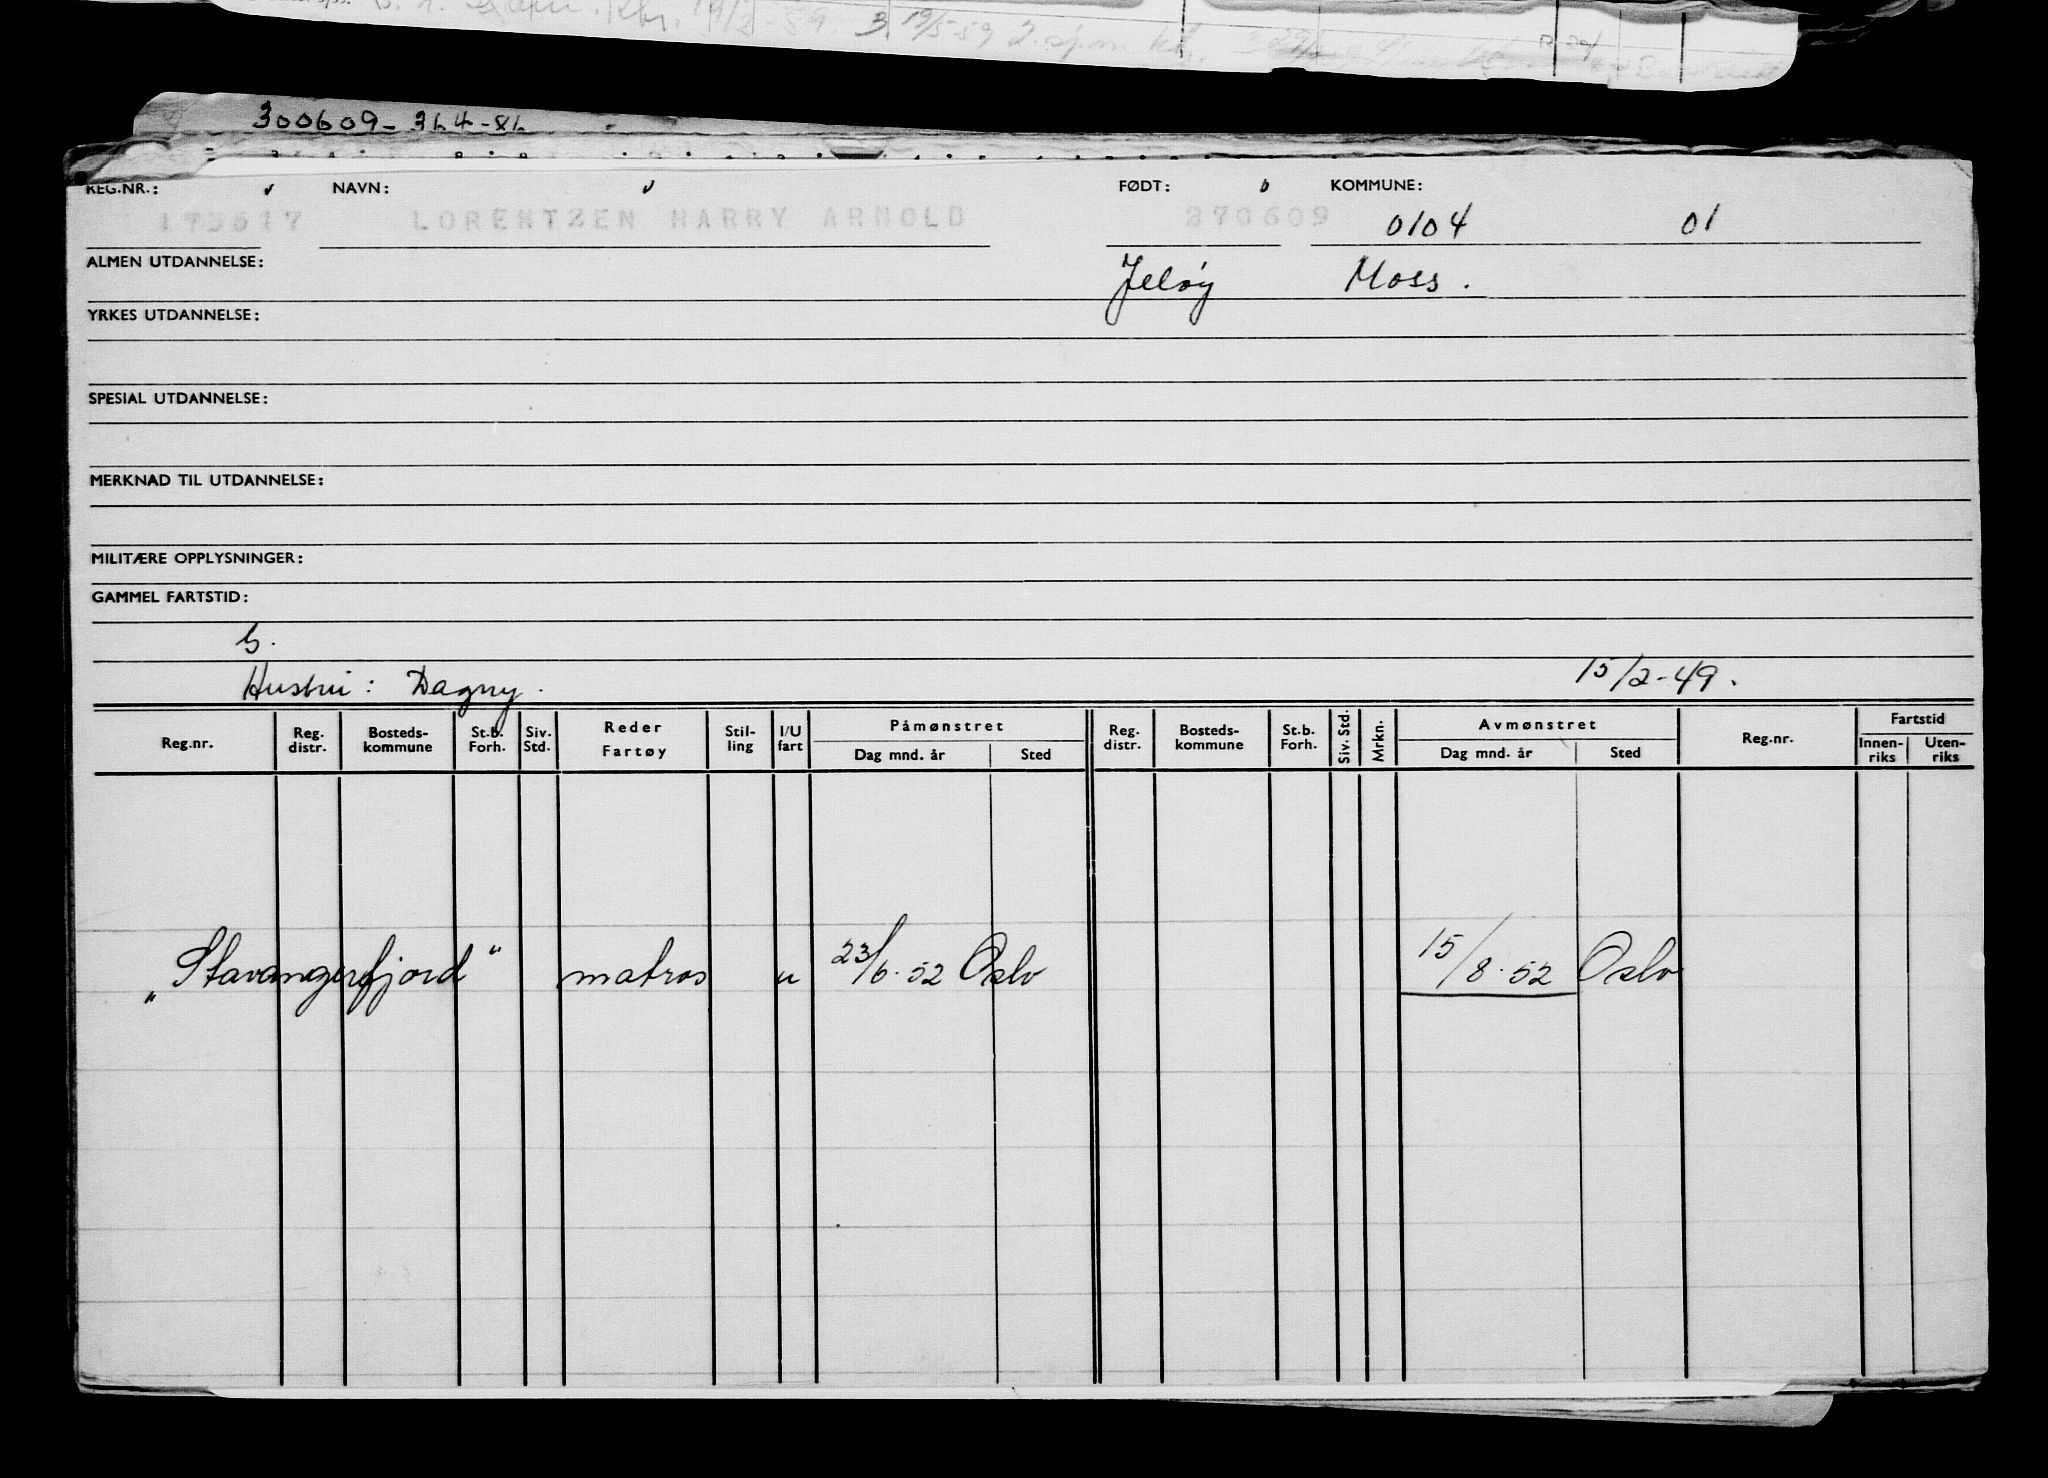 19/5-59
300609-364-86
REG.NR.: NAVN: FØDT: KOMMUNE:
LORENTZEN HARRY ARNOLD 270609 0104 01
ALMEN UTDANNELSE: Jeløy Moss.
YRKES UTDANNELSE:
SPESIAL UTDANNELSE:
MERKNAD TIL UTDANNELSE:
MILITÆRE OPPLYSNINGER:
GAMMEL FARTSTID:
Hustru: Dagny. 15/2-49.
Reg.nr. Reg. distr. Bosteds-kommune St.b. Forh. Siv. Std. Reder Fartøy Stil-ling I/U fart Påmønstret Dag mnd. år Sted Reg. distr. Bosteds-kommune St.b. Forh. Siv. Std. Mrkn. Avmønstret Dag mnd. år Sted Reg.nr. Fartstid Innen-riks Uten-riks
„Stavangerfjord" matros u 23/6.52 Oslo 15/8.52 Oslo